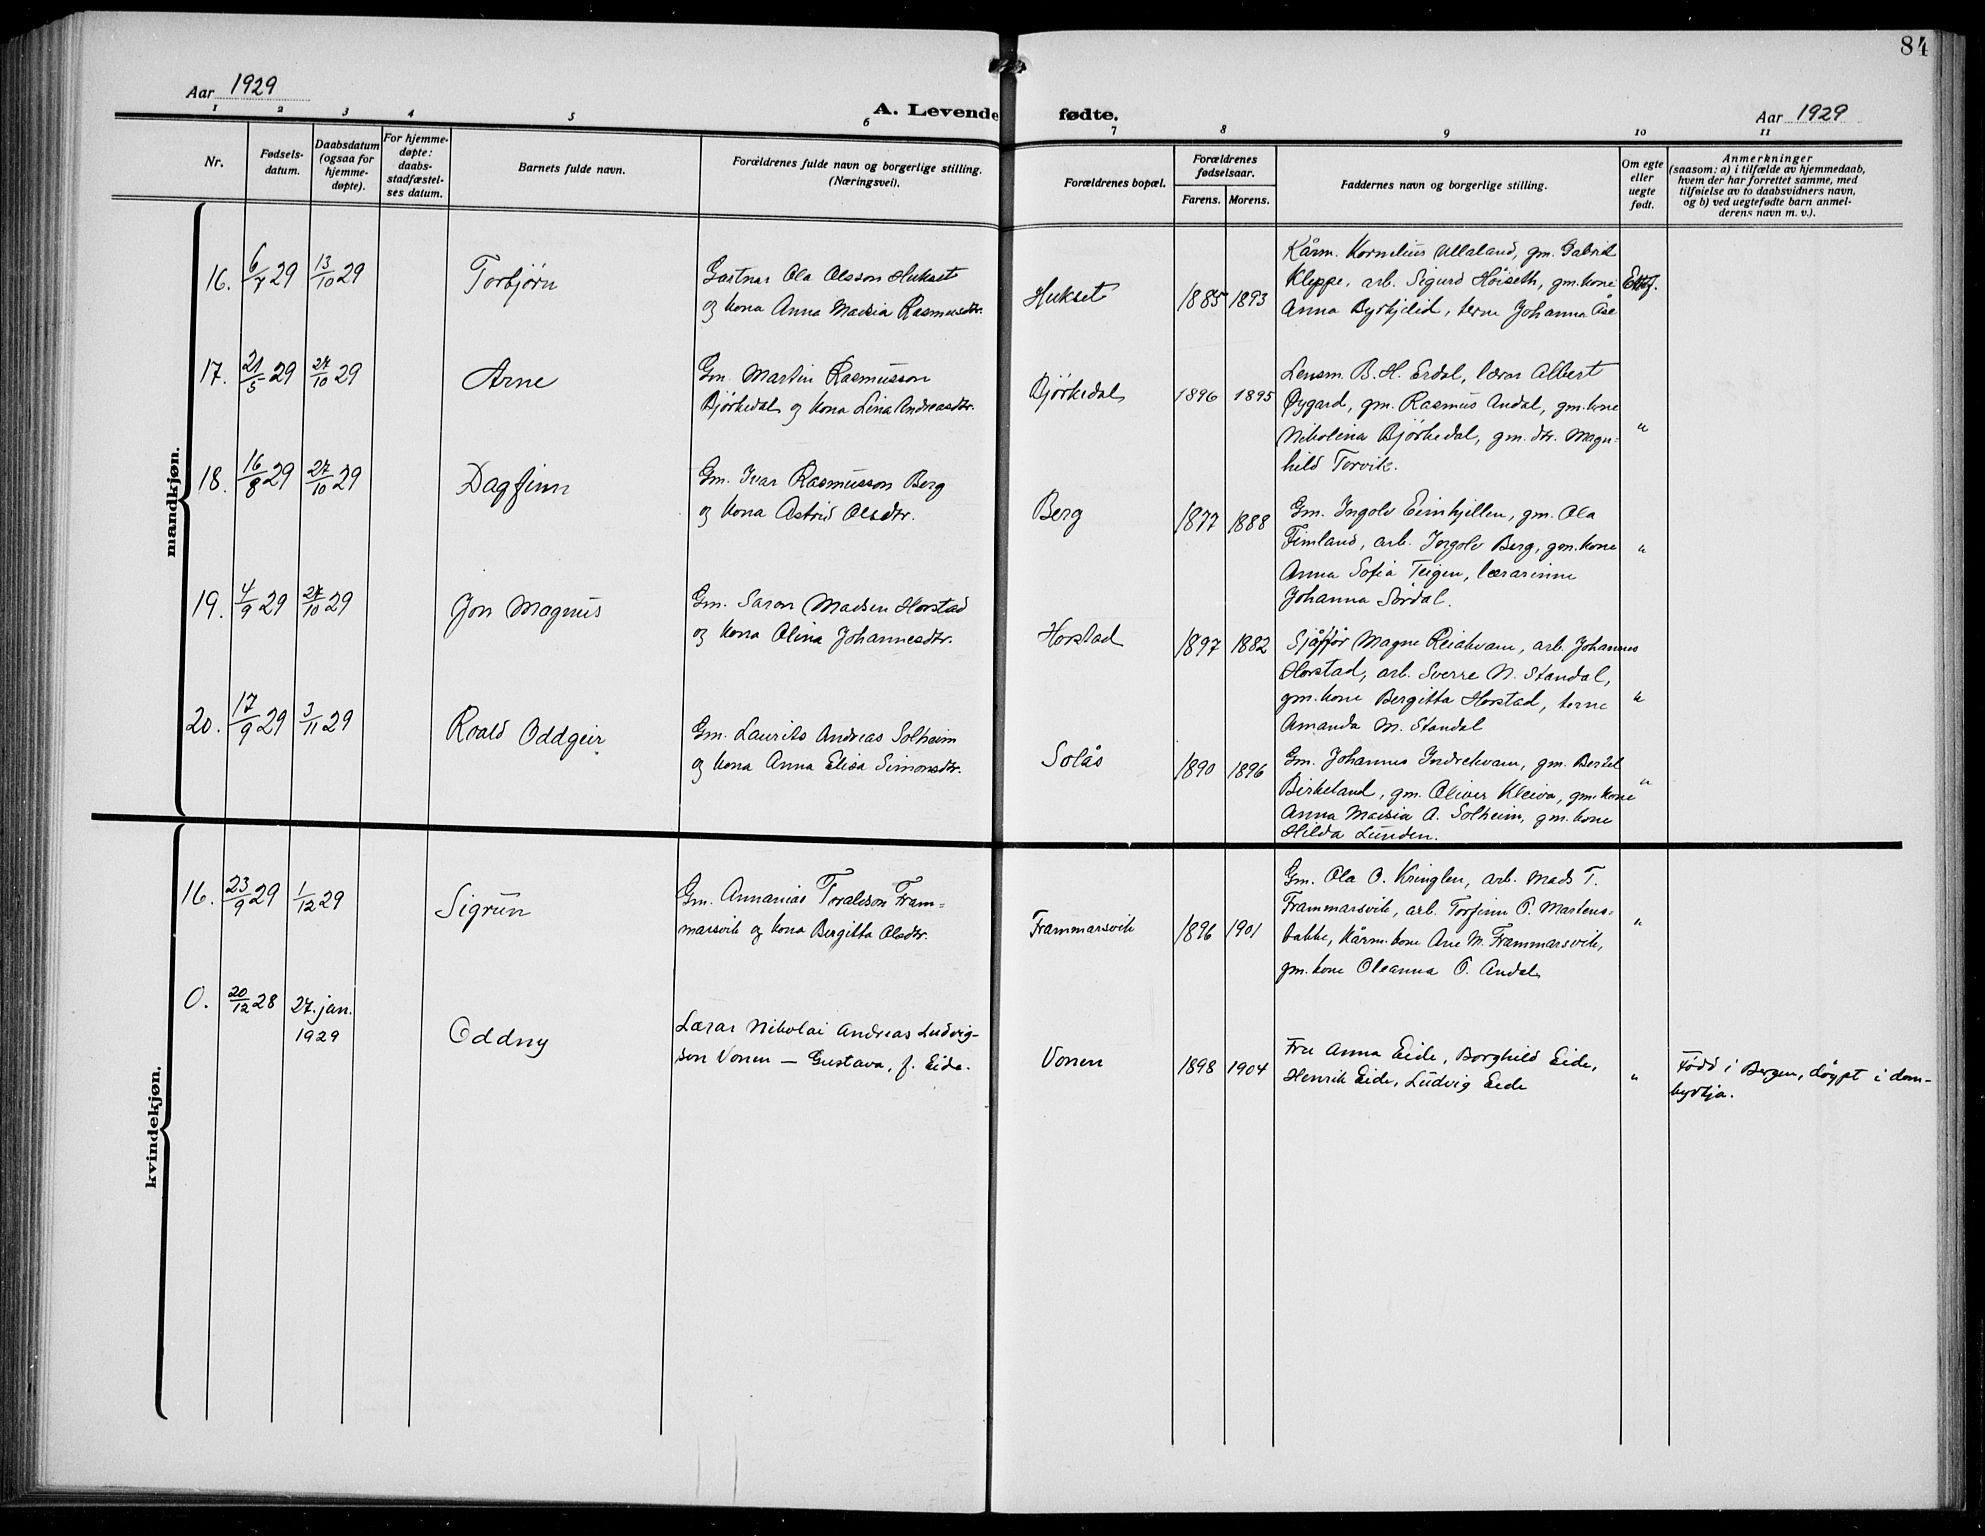 84
Aar 1929
A. Levende fødte.
Aar 1929
1 2 3 4 5 6 7 8 9 10 11
Nr.
Fødsels-
datum.
Daabsdatum
(ogsaa for
hjemme-
døpte).
For hjemme-
døpte:
daabs-
stadfæstel-
ses datum.
Barnets fulde navn.
Forældrenes fulde navn og borgerlige stilling.
(Næringsvei).
Forældrenes bopæl.
Forældrenes
fødselsaar.
Farens. Morens.
Faddernes navn og borgerlige stilling.
Om egte
eller
uegte
født.
Anmerkninger
(saasom: a) i tilfælde av hjemmedaab,
hvem der har forrettet samme, med
tilføielse av to daabsvidners navn,
og b) ved uegtefødte barn anmel-
derens navn m. v.).
mandkjøn.
16. 6/7 29 13/10 29
Torbjørn
Gartnar Ola Olsson Hukset
og kona Anna Maria Rasmusdtr.
Hukset
1885 1893
Kårm. Kornelius Ullaland, gm. Gabriel
Kleppe, arb. Sigurd Høiseth, gm. kone
Anna Byrkjelid, terne Johanna Åse
Ektef.
17. 21/5 29 27/10 29
Arne
Gm. Martin Rasmusson
Bjørkedal og kona Lina Andreasdtr.
Bjørkedal
1896 1895
Lensm. B. H. Erdal, lærar Albert
Øygard, gm. Rasmus Andal, gm. kone
Nikolina Bjørkedal, gm. dtr. Magn-
hild Torvik.
"
18. 16/8 29 27/10 29
Dagfinn
Gm. Ivar Rasmusson Berg
og kona Astrid Olsdtr.
Berg
1877 1888
Gm. Ingolv Eimhjellen, gm. Ola
Fimland, arb. Ingolv Berg, gm. kone
Anna Sofia Teigen, lærarinne
Johanna Sørdal.
"
19. 4/9 29 27/10 29
Jon Magnus
Gm. Saron Madsen Horstad
og kona Olina Johannesdtr.
Horstad
1897 1882
Sjåffør Magne Reiakvam, arb. Johannes
Horstad, arb. Sverre N. Standal,
gm. kone Bergitta Horstad, terne
Amanda M. Standal
"
20. 17/9 29 3/11 29
Roald Oddgeir
Gm. Laurits Andreas Solheim
og kona Anna Elisa Simonsdtr.
Solås
1890 1896
Gm. Johannes Indrekvam, gm. Bertel
Birkeland, gm. Oliver Kleiva, gm. kone
Anna Maria A. Solheim, gm. kone
Hilda Lunden.
"
kvindekjøn.
16. 23/9 29 1/12 29
Sigrun
Gm. Annanias Toralvson Fram-
marsvik og kona Bergitta Olsdtr.
Frammarsvik
1896 1901
Gm. Ola O. Kringlen, arb. Mads T.
Frammarsvik, arb. Torfinn P. Martens-
bakke, Kårm. kone Ane M. Frammarsvik,
gm. kone Oleanna O. Andal
"
0. 20/12 28 27. jan.
1929
Oddny
Lærar Nikolai Andreas Ludvig-
son Vonen — Gustava, f. Eide.
Vonen
1898 1904
Fru Anna Eide, Borghild Eide,
Henrik Eide, Ludvig Eide
"
Född i Bergen, döypt i dom-
kyrkja.